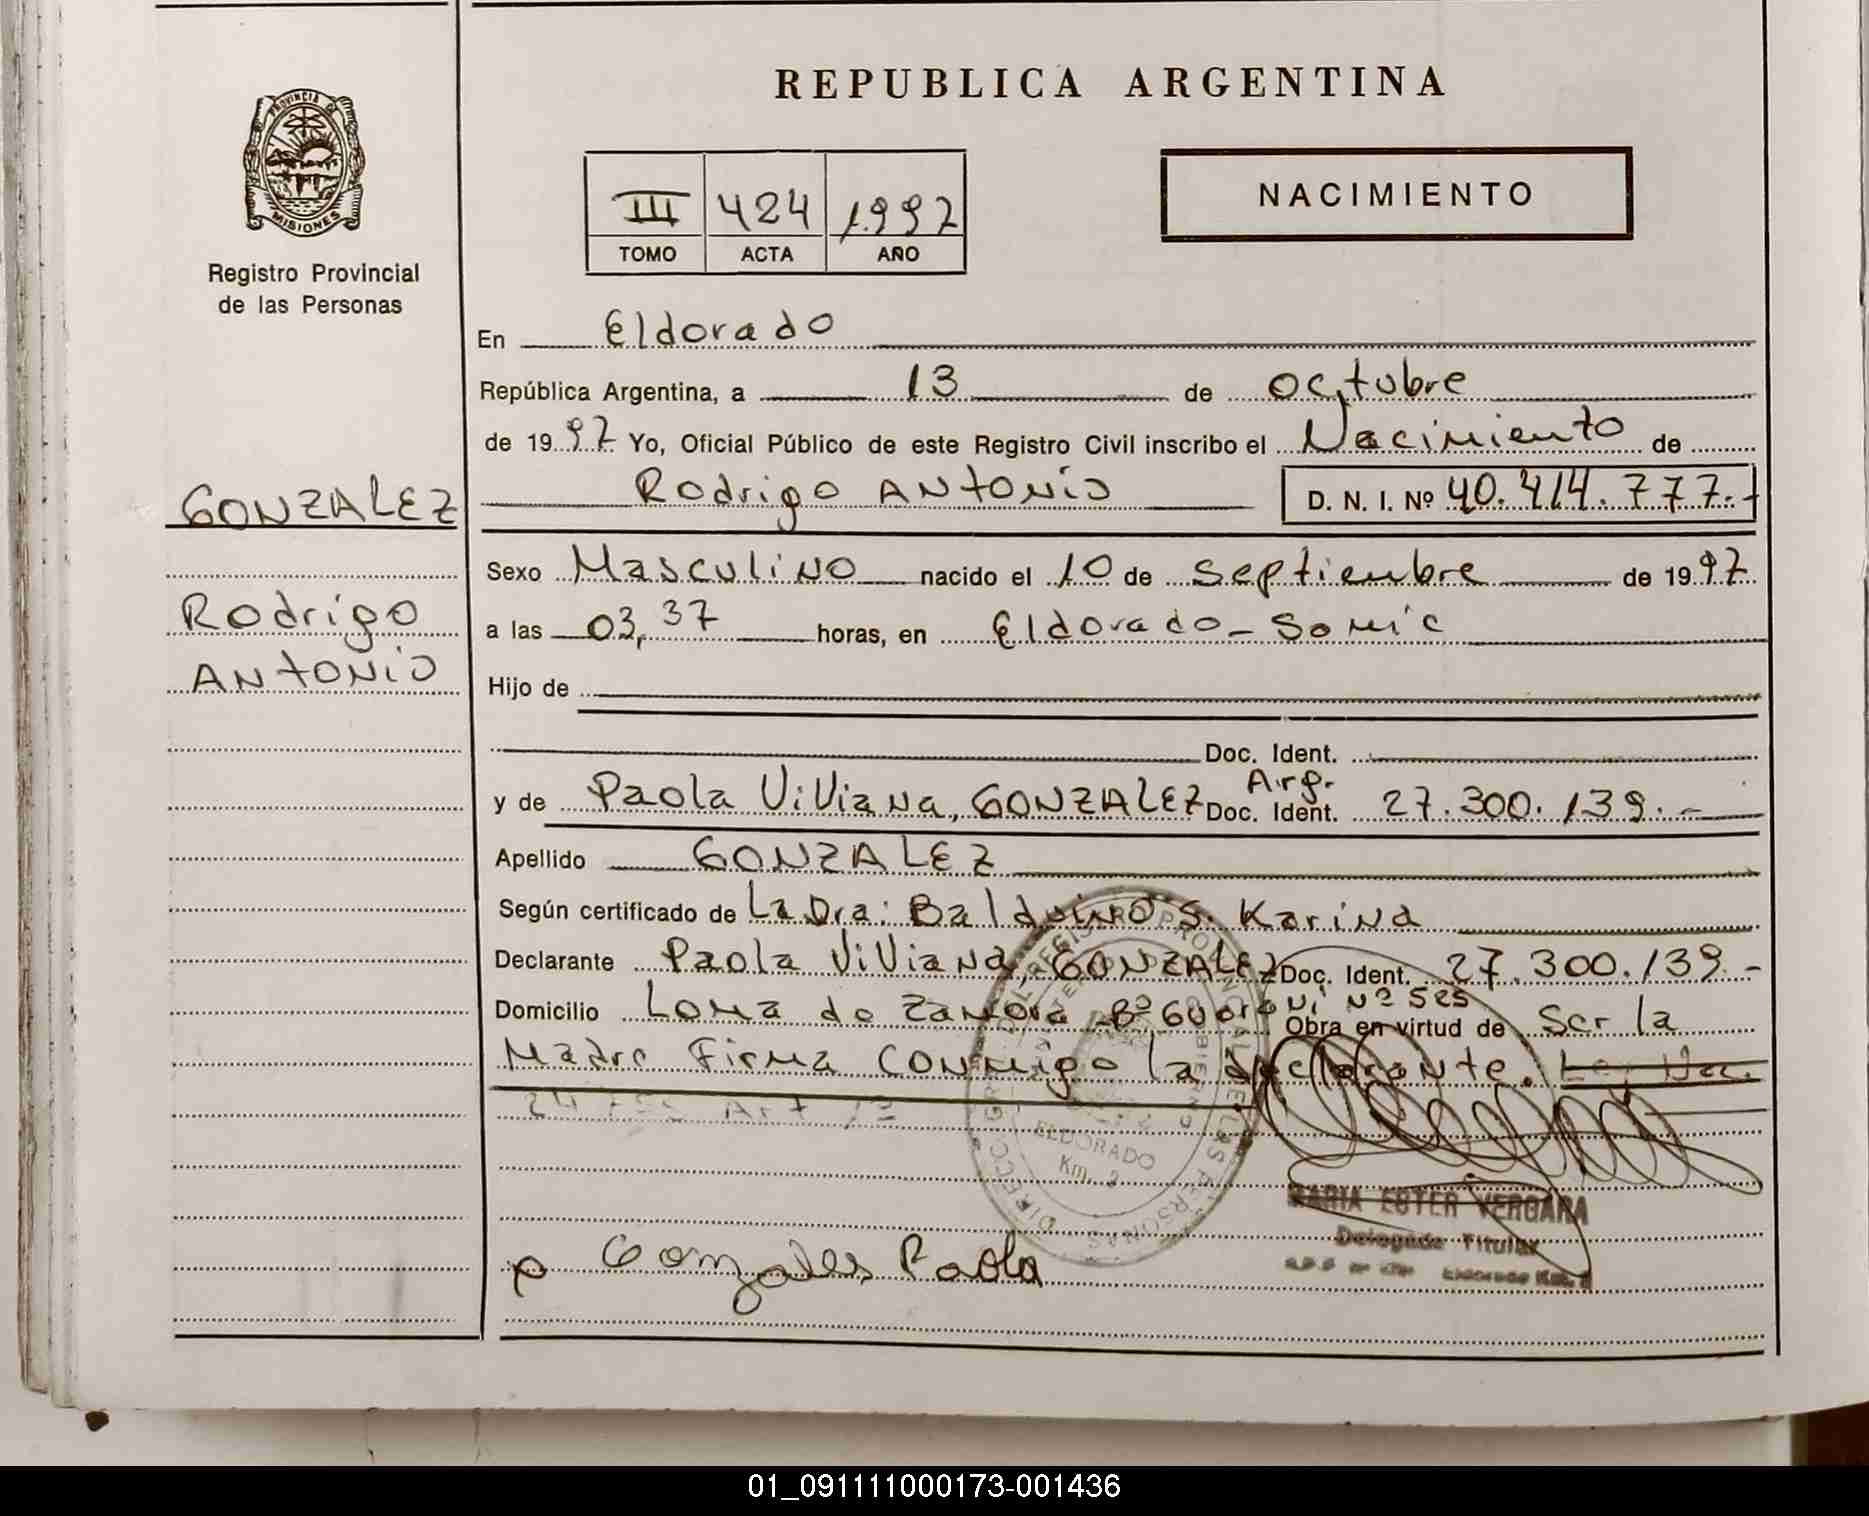 REPUBLICA ARGENTINA
PROVINCIA DE
MISIONES
Registro Provincial
de las Personas
III 424 1997
TOMO ACTA AÑO
NACIMIENTO
En Eldorado
República Argentina, a 13 de octubre
de 1997 Yo, Oficial Público de este Registro Civil inscribo el Nacimiento de
Rodrigo ANTONIO D. N. I. Nº 40.414.777.-
GONZALEZ
Rodrigo
ANTONIO
Sexo Masculino nacido el 10 de septiembre de 1997
a las 03,37 horas, en Eldorado - Somic
Hijo de
Doc. Ident.
y de Paola Viviana, GONZALEZ Arg. Doc. Ident. 27.300.139.-
Apellido GONZALEZ
Según certificado de La Dra: Balduino S. Karina
Declarante Paola Viviana, GONZALEZ Doc. Ident. 27.300.139.-
Domicilio Loma de Zamora - Bº Guaraní Nº 525 Obra en virtud de Ser la
Madre Firma conmigo la declarante.
ELDORADO
Km. 2
MARIA ESTER VERGARA
Delegada Titular
Gonzales Paola
01_091111000173-001436